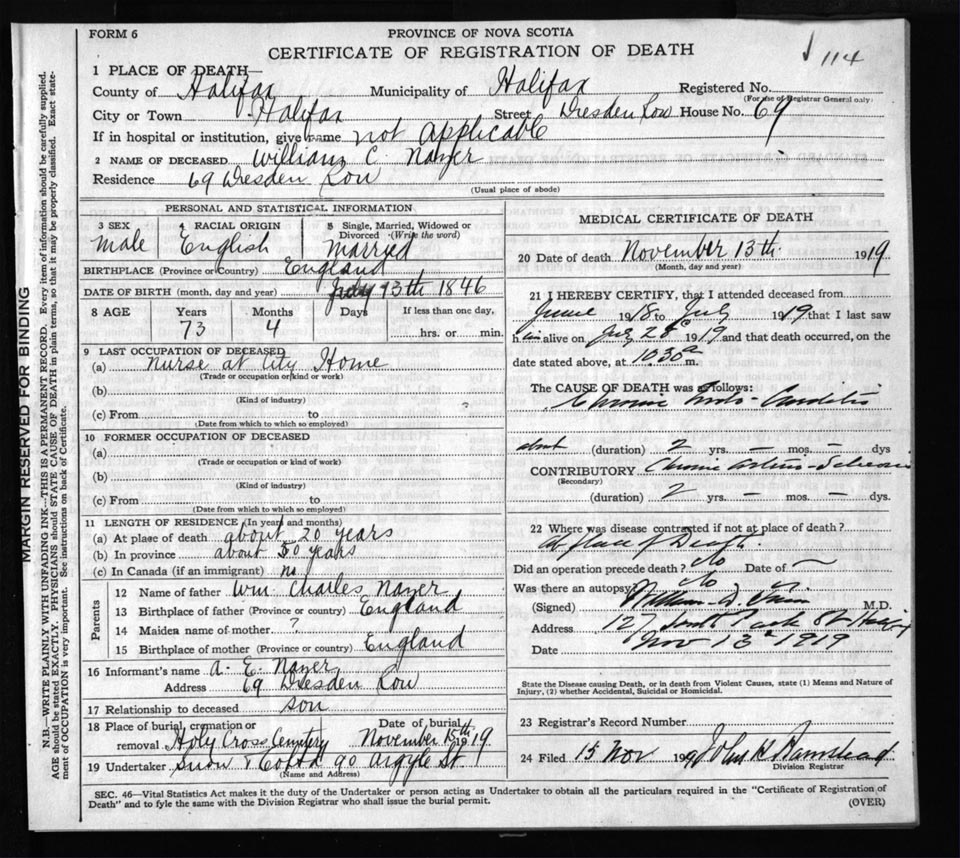 FORM 6
PROVINCE OF NOVA SCOTIA
CERTIFICATE OF REGISTRATION OF DEATH
114
1 PLACE OF DEATH—
County of Halifax Municipality of Halifax Registered No.
(For use of Registrar General only)
City or Town Halifax Street Dresden Row House No. 69
If in hospital or institution, give name not applicable
2 NAME OF DECEASED William C. Nayer
Residence 69 Dresden Row
(Usual place of abode)
PERSONAL AND STATISTICAL INFORMATION
3 SEX male
4 RACIAL ORIGIN English
5 Single, Married, Widowed or Divorced (Write the word) Married
BIRTHPLACE (Province or Country) England
DATE OF BIRTH (month, day and year) July 13th 1846
8 AGE Years 73 Months 4 Days If less than one day, hrs. or min.
9 LAST OCCUPATION OF DECEASED
(a) Nurse at City Home
(Trade or occupation or kind or work)
(b)
(Kind of industry)
(c) From to
(Date from which to which so employed)
10 FORMER OCCUPATION OF DECEASED
(a)
(Trade or occupation or kind of work)
(b)
(Kind of industry)
(c) From to
(Date from which to which so employed)
11 LENGTH OF RESIDENCE (In years and months)
(a) At place of death about 20 years
(b) In province about 50 years
(c) In Canada (if an immigrant) no
Parents
12 Name of father Wm. Charles Nayer
13 Birthplace of father (Province or country) England
14 Maiden name of mother ?
15 Birthplace of mother (Province or country) England
16 Informant's name A. E. Nayer
Address 69 Dresden Row
17 Relationship to deceased son
18 Place of burial, cremation or removal Holy Cross Cemetery Date of burial November 15th 1919
19 Undertaker Snow & 90 Argyle St
(Name and Address)
MEDICAL CERTIFICATE OF DEATH
20 Date of death November 13th 1919
(Month, day and year)
21 I HEREBY CERTIFY, that I attended deceased from
June 1918 to July 1919 that I last saw
him alive on July 1919 and that death occurred, on the
date stated above, at 10.30 a m.
The CAUSE OF DEATH was as follows:
Chronic
about (duration) 2 yrs. — mos. — dys
CONTRIBUTORY Chronic
(Secondary)
(duration) 2 yrs. — mos. — dys.
22 Where was disease contracted if not at place of death?
At place of Death.
Did an operation precede death? No Date of —
Was there an autopsy? No
(Signed) William D. M.D.
Address 127 South Park St Halifax
Date Nov 13 1919
State the Disease causing Death, or in death from Violent Causes, state (1) Means and Nature of
Injury, (2) whether Accidental, Suicidal or Homicidal.
23 Registrar's Record Number
24 Filed 15 Nov 1919 John
Division Registrar
SEC. 46—Vital Statistics Act makes it the duty of the Undertaker or person acting as Undertaker to obtain all the particulars required in the "Certificate of Registration of
Death" and to fyle the same with the Division Registrar who shall issue the burial permit. (OVER)
MARGIN RESERVED FOR BINDING
N.B.—WRITE PLAINLY WITH UNFADING INK—THIS IS A PERMANENT RECORD. Every item of information should be carefully supplied.
AGE should be stated EXACTLY. PHYSICIANS should STATE CAUSE OF DEATH in plain terms, so that it may be properly classified. Exact state-
ment of OCCUPATION is very important. See instructions on back of Certificate.